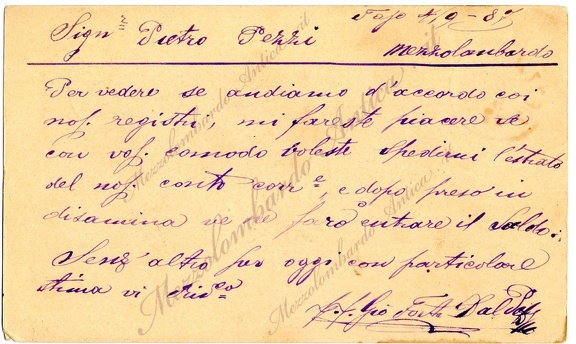 Sign.re Pietro Pezzi
Fajo 4/9-87
Mezzolombardo
Per vedere se andiamo d'accordo coi
nos. registri, mi fareste piacere se
con vos. comodo voleste spedirmi l'estratto
del nos. conto corr.e, e dopo preso in
disamina ve ne farò entrare il Saldo.
Senz'altro per oggi con particolare
stima vi
Mezzolombardo Antica.it
Mezzolombardo Antica.it
Mezzolombardo Antica.it